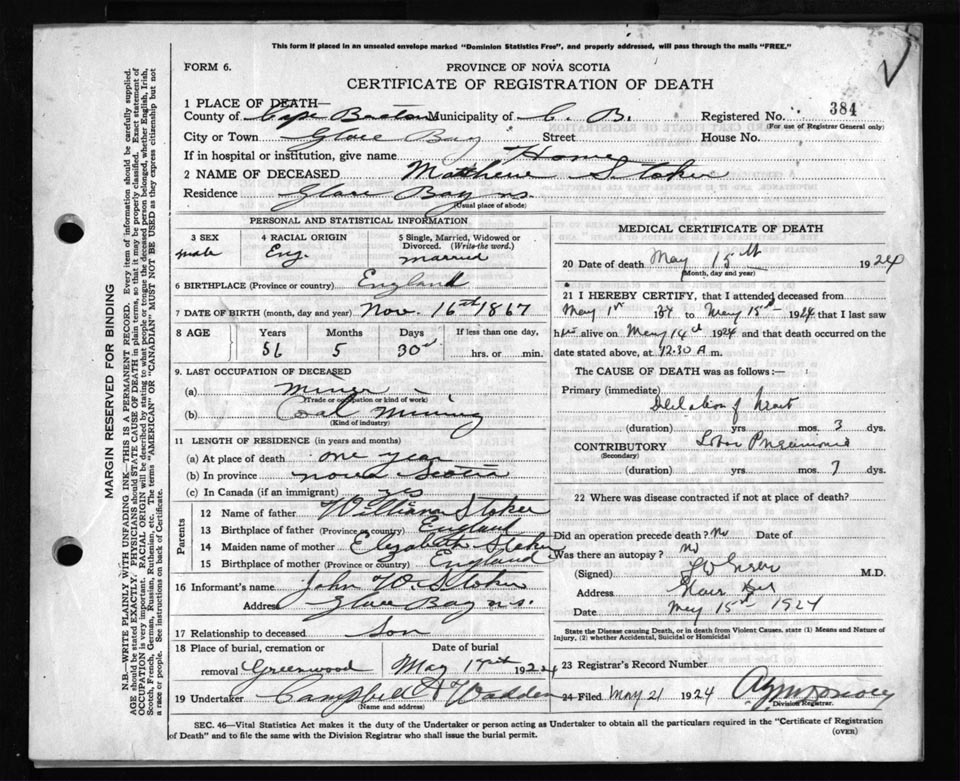 This form if placed in an unsealed envelope marked "Dominion Statistics Free", and properly addressed, will pass through the mails "FREE."
FORM 6.
PROVINCE OF NOVA SCOTIA
CERTIFICATE OF REGISTRATION OF DEATH
1 PLACE OF DEATH—
384
County of Cape Breton Municipality of C. B. Registered No.
(For use of Registrar General only)
City or Town Glace Bay Street House No.
If in hospital or institution, give name Home
2 NAME OF DECEASED Matthew Stoker
Residence Glace Bay N.S.
(Usual place of abode)
PERSONAL AND STATISTICAL INFORMATION
3 SEX
male
4 RACIAL ORIGIN
Eng.
5 Single, Married, Widowed or Divorced. (Write the word.)
married
6 BIRTHPLACE (Province or country) England
7 DATE OF BIRTH (month, day and year) Nov. 16th 1867
8 AGE Years Months Days If less than one day,
56 5 30 hrs. or min.
9. LAST OCCUPATION OF DECEASED
(a) Miner
(Trade or occupation or kind of work)
(b) Coal Mining
(Kind of industry)
11 LENGTH OF RESIDENCE (in years and months)
(a) At place of death one year
(b) In province Nova Scotia
(c) In Canada (if an immigrant)
Parents
12 Name of father William Stoker
13 Birthplace of father (Province or country) England
14 Maiden name of mother Elizabeth Stoker
15 Birthplace of mother (Province or country) England
16 Informant's name John W. Stoker
Address Glace Bay N.S.
17 Relationship to deceased Son
18 Place of burial, cremation or Date of burial
removal Greenwood May 17th 1924
19 Undertaker Campbell & Wadden
(Name and address)
MEDICAL CERTIFICATE OF DEATH
20 Date of death May 15th 1924
(Month, day and year)
21 I HEREBY CERTIFY, that I attended deceased from
May 1st to May 15th 1924 that I last saw
him alive on May 14th 1924 and that death occurred on
date stated above, at 12.30 A.m.
The CAUSE OF DEATH was as follows:—
Primary (immediate) Dilation of Heart
(duration) yrs mos. 3 dys.
CONTRIBUTORY Lobar Pneumonia
(Secondary)
(duration) yrs mos. 7 dys.
22 Where was disease contracted if not at place of death?
Did an operation precede death? No Date of
Was there an autopsy? No
(Signed) M.D.
Address Glace Bay
Date May 15th 1924
State the Disease causing Death, or in death from Violent Causes, state (1) Means and Nature of Injury, (2) whether Accidental, Suicidal or Homicidal
23 Registrar's Record Number
24 Filed May 21 1924
Division Registrar.
SEC. 46—Vital Statistics Act makes it the duty of the Undertaker or person acting as Undertaker to obtain all the particulars required in the "Certificate of Registration
of Death" and to file the same with the Division Registrar who shall issue the burial permit.
(OVER)
MARGIN RESERVED FOR BINDING
N.B.—WRITE PLAINLY WITH UNFADING INK—THIS IS A PERMANENT RECORD. Every item of information should be carefully supplied.
AGE should be stated EXACTLY. PHYSICIANS should STATE CAUSE OF DEATH in plain terms, so that it may be properly classified. Exact statement of
OCCUPATION is very important. RACIAL ORIGIN will be described by stating to what people or tongue the deceased person belonged, whether English, Irish,
Scotch, French, German, Russian, Ruthenian, etc. The terms "AMERICAN" OR "CANADIAN" MUST NOT BE USED as they express citizenship but not
a race or people. See instructions on back of Certificate.